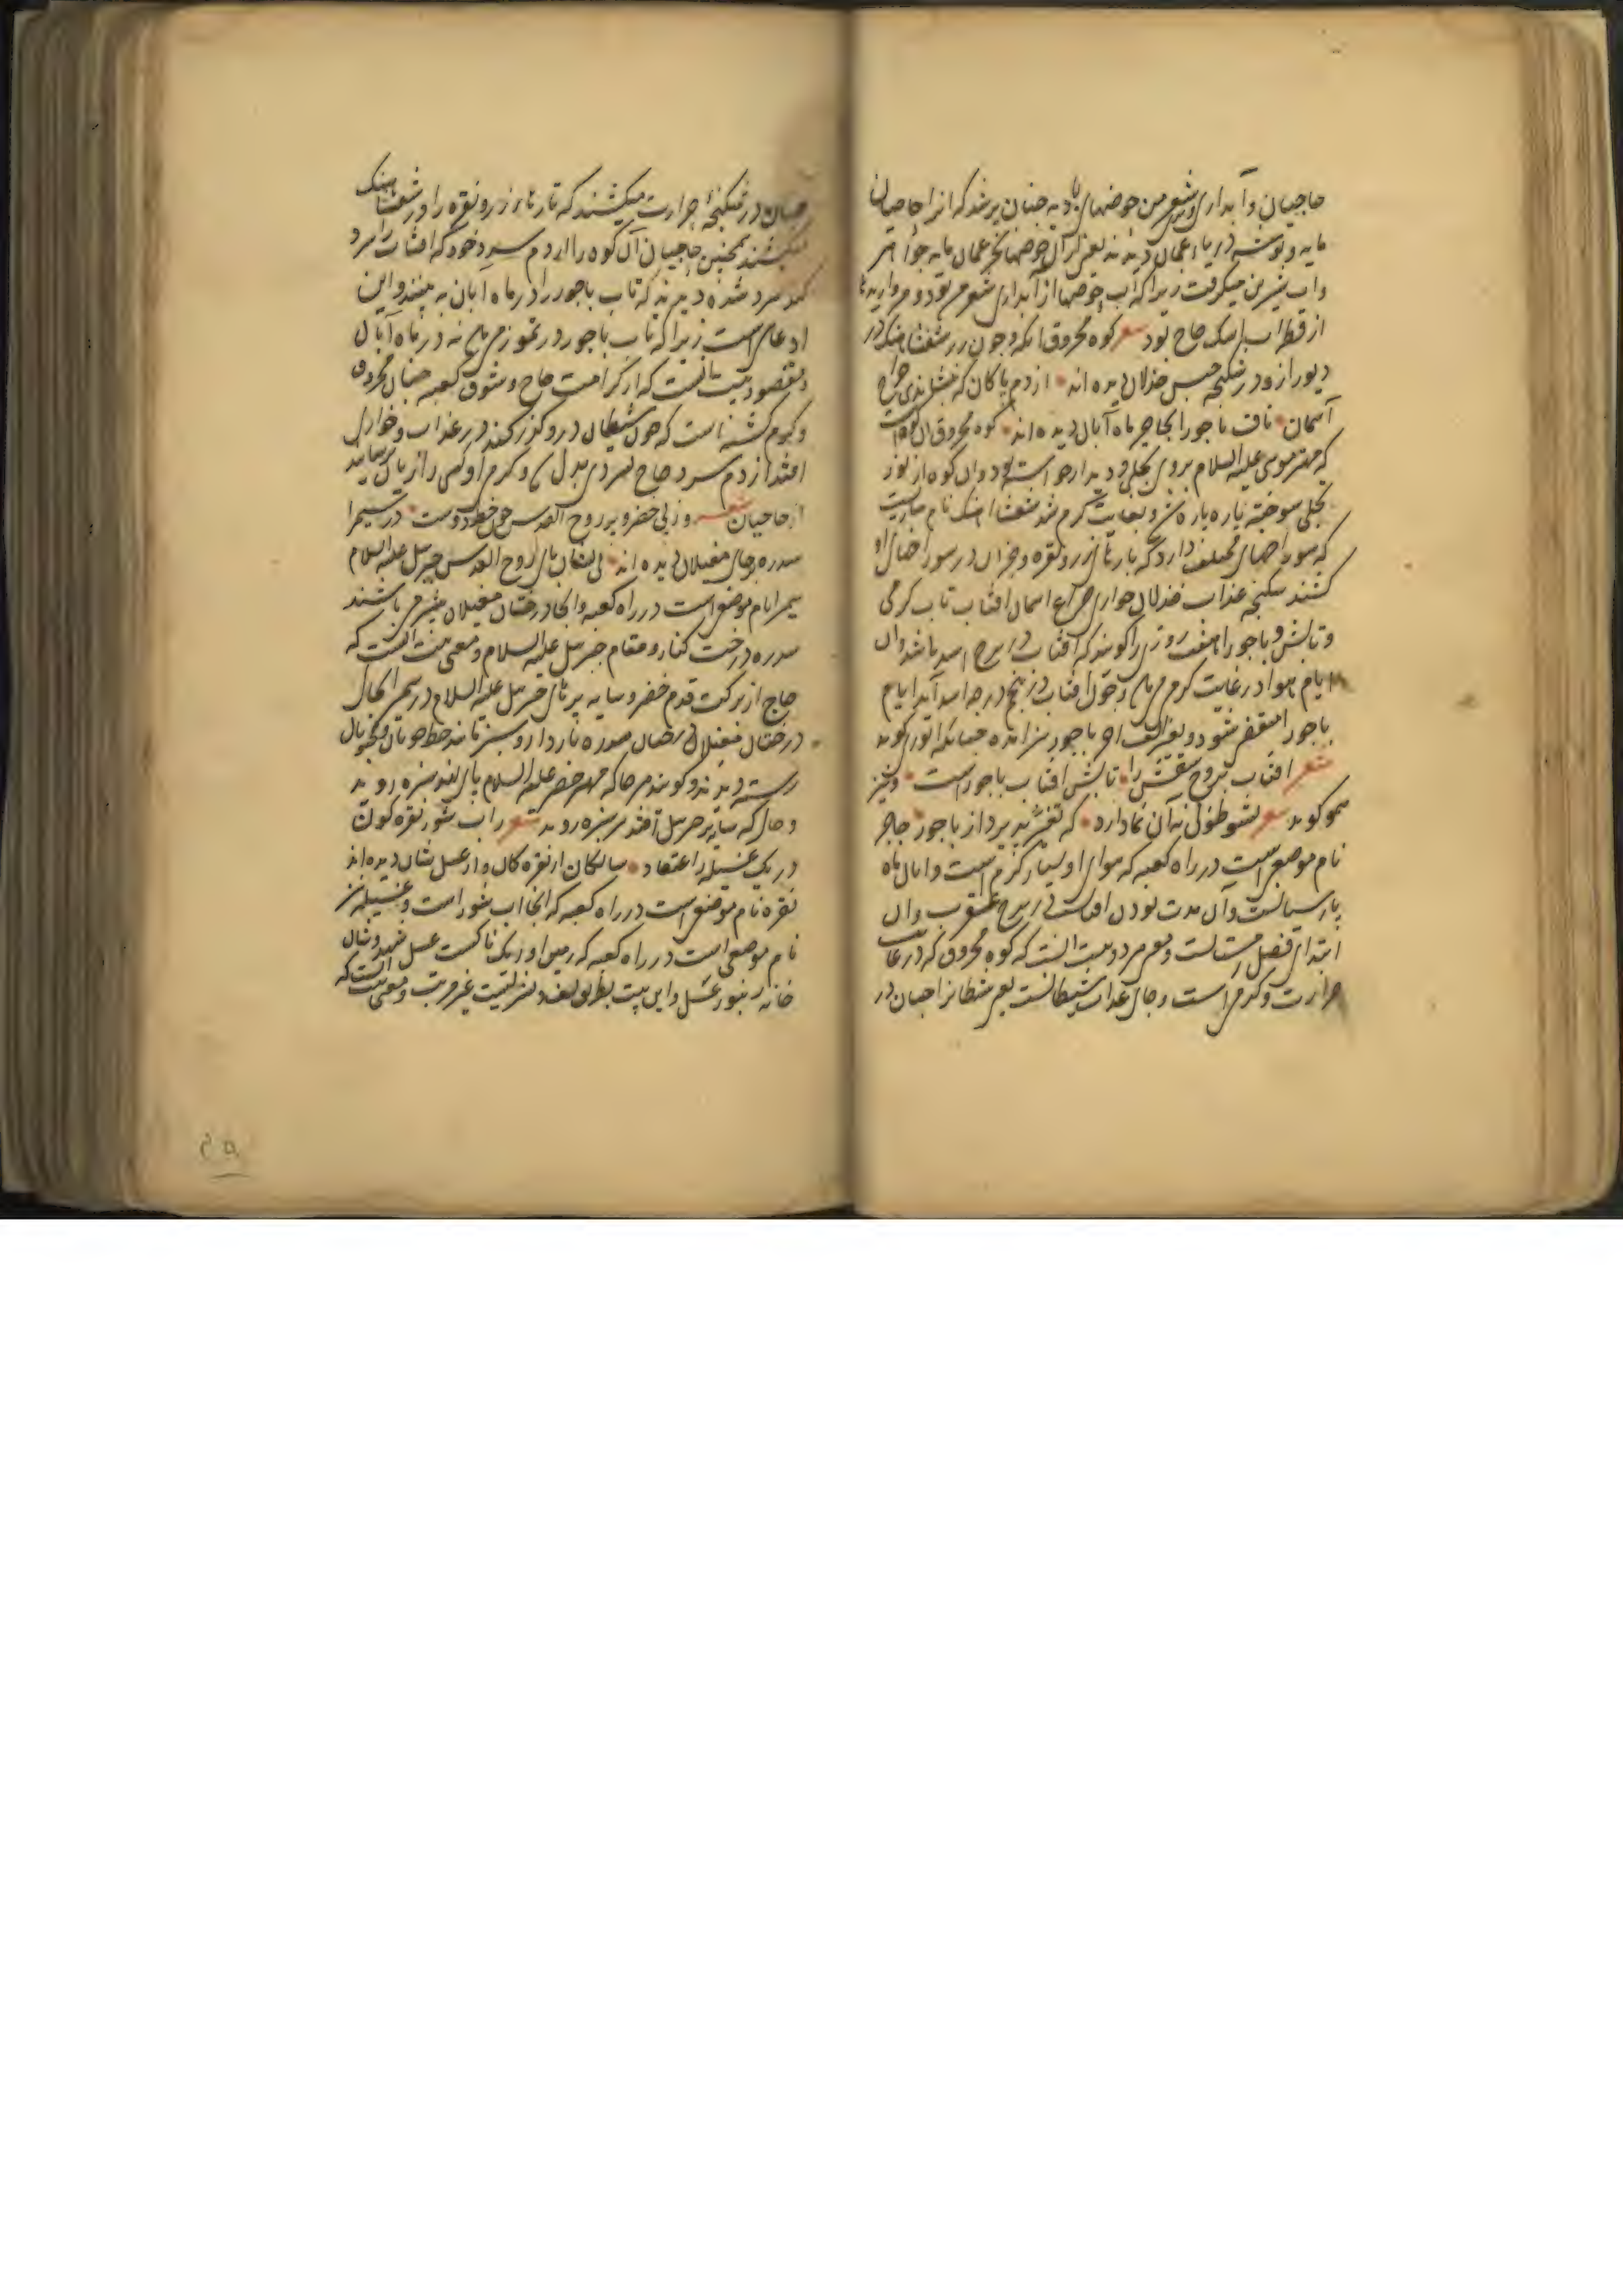 حاجیان و آبداری شعر من حوضهای بادیه چنان پر شد که آنرا حاجیان
مایه و توشه دریاء عمان دیدند یعنی از آن حوضها بحر عمان مایه جواهر
و آب شیرین میگرفت زیرا که آب حوضها از آبداری شعر من بود و مرواریدها
از قطرات اشک حاج بود شعر کوه محروق آنکه و چون زر شفشاهنگ در
دیو را زو در شکنجه حبس خذلان دیده اند از دم پاکان که بنشاندی چراغ
آسمان ناف باحورا بحاجر ماه آبان دیده اند کوه محروق آن کوه است
که مهتر موسی علیه السلام بروی تجلی و دیدار خواسته بود و آن کوه از نور
تجلی سوخته پاره پاره شد و بغایت گرم شد شفشاهنگ نام
که سوراخهای مختلف دارد که تارهای زر و نقره و جز آن در سوراخهای او
کشند شکنجه عذاب خذلان خواری چراغ آسمان آفتاب تاب گرمی
و تابش و باحورا هفت روز را گویند که آفتاب در برج اسد باشد و آن
ایام هوا در غایت گرمی و چون آفتاب در پنج درجه اسد آید ایام
باحورا منقضی شود و بغیر الف آخر باحور نیز آمده چنانکه انوری گوید
شعر آفتاب بروج سقفش را تابش آفتاب باحور است و نیز
همو گوید شعر که تفش پدیرد از باحور حاجر
نام موضعی است در راه کعبه که هوای او بسیار گرم است و آبان ماه
پارسیانست و آن مدت بودن آفتاب در برج عقرب و آن
ابتدای فصل و معنی هر دو بیت آنست که کوه محروق که در غایت
حرارت و گرمی است و جای عذاب شیطانست یعنی شیطان را چنان در
چنان در شکنجه حرارت میکشند که تارهای زر و نقره را در شفشاهنگ
میکشند همچنین حاجیان آن کوه را از دم سرد خود که آفتاب را سرد
کند سرد شده دیدند که تاب باحور را در ماه آبان به بینند و این
ادعای است زیرا که تاب باحور در تموز می باشد نه در ماه آبان
و مقصود بیت آنست که از کرامت حاج و شوق کعبه چنان محروق
و گرم گشته است که چون شیطان در و گذر کند در عذاب و خواری
افتد از دم سرد حاج بسردی بدل و گرمی او کسی را زیان نرساند
از حاجیان شعر وز پی خضر و پر روح القدس چون خط دوست در سمیرا
سدره بر جای مغیلان دیده اند پی نشان پای روح القدس جبرئیل علیه السلام
سمیرا نام موضعی است در راه کعبه و آنجا درختان مغیلان بیشتر باشند
سدره درخت کنار و مقام جبرئیل علیه السلام و معنی بیت آنست که
حاج از برکت قدم خضر و سایه پرهای جبرئیل علیه السلام در سمیرا بجای
درختان مغیلان درختان سدره باردار و سبز مانند خط خوبان و محبوبان
رسته دیدند و گویند هر جا که مهتر خضر علیه السلام پای نهد سبزه روید
و جای که سایه پر جبرئیل افتد نیز سبزه روید شعر ز آب شور نقره گون
و ریگ عسیله ز اعتقاد سالکان از نقره کان و از عسل نشان دیده اند
نقره نام موضعی است در راه کعبه که آنجا آب شور است و عسیله نیز
نام موضعی است در راه کعبه که زمین او ریگ ناکست عسل شهد و شان
خانه زنبور عسل و این بیت بطریق لف و نشر است غیر مرتب و معنی بیت آنست که